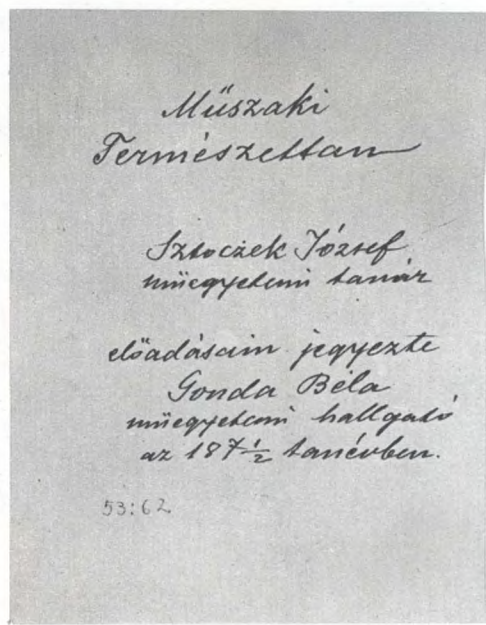 Műszaki
Természettan
Sztoczek József
műegyetemi tanár
előadásain jegyezte
Gonda Béla
műegyetemi hallgató
az 187 1/2 tanévben.
53:62.